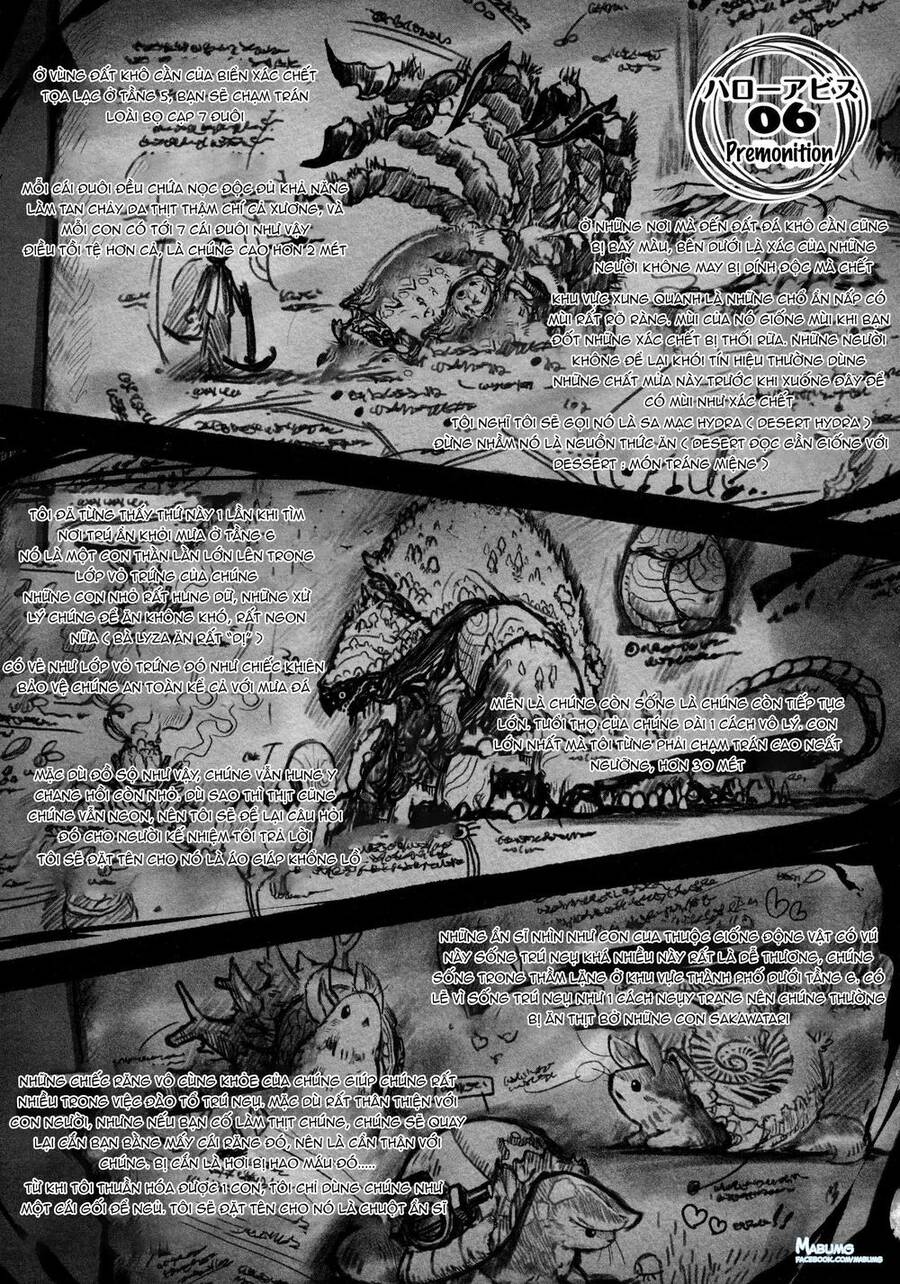 ハローアビス
06
Premonition
Ở VÙNG ĐẤT KHÔ CẰN CỦA BIỂN XÁC CHẾT
TỌA LẠC Ở TẦNG 5, BẠN SẼ CHẠM TRÁN
LOÀI BỌ CẠP 7 ĐUÔI
MỖI CÁI ĐUÔI ĐỀU CHỨA NỌC ĐỘC ĐỦ KHẢ NĂNG
LÀM TAN CHẢY DA THỊT THẬM CHÍ CẢ XƯƠNG, VÀ
MỖI CON CÓ TỚI 7 CÁI ĐUÔI NHƯ VẬY
ĐIỀU TỒI TỆ HƠN CẢ, LÀ CHÚNG CAO HƠN 2 MÉT
Ở NHỮNG NƠI MÀ ĐẾN ĐẤT ĐÁ KHÔ CẰN CŨNG
BỊ BAY MÀU, BÊN DƯỚI LÀ XÁC CỦA NHỮNG
NGƯỜI KHÔNG MAY BỊ DÍNH ĐỘC MÀ CHẾT
KHU VỰC XUNG QUANH LÀ NHỮNG CHỖ ẨN NẤP CÓ
MÙI RẤT RÕ RÀNG. MÙI CỦA NÓ GIỐNG MÙI KHI BẠN
ĐỐT NHỮNG XÁC CHẾT BỊ THỐI RỮA. NHỮNG NGƯỜI
KHÔNG ĐỂ LẠI KHÓI TÍN HIỆU THƯỜNG DÙNG
NHỮNG CHẤT MỬA NÀY TRƯỚC KHI XUỐNG ĐÂY ĐỂ
CÓ MÙI NHƯ XÁC CHẾT
TÔI NGHĨ TÔI SẼ GỌI NÓ LÀ SA MẠC HYDRA ( DESERT HYDRA )
ĐỪNG NHẦM NÓ LÀ NGUỒN THỨC ĂN ( DESERT ĐỌC GẦN GIỐNG VỚI
DESSERT : MÓN TRÁNG MIỆNG )
TÔI ĐÃ TỪNG THẤY THỨ NÀY 1 LẦN KHI TÌM
NƠI TRÚ ẨN KHỎI MƯA Ở TẦNG 6
NÓ LÀ MỘT CON THẰN LẰN LỚN LÊN TRONG
LỚP VỎ TRỨNG CỦA CHÚNG
NHỮNG CON NHỎ RẤT HUNG DỮ, NHƯNG XỬ
LÝ CHÚNG ĐỂ ĂN KHÔNG KHÓ, RẤT NGON
NỮA ( BÀ LYZA ĂN RẤT "DỊ" )
CÓ VẺ NHƯ LỚP VỎ TRỨNG ĐÓ NHƯ CHIẾC KHIÊN
BẢO VỆ CHÚNG AN TOÀN KỂ CẢ VỚI MƯA ĐÁ
MIỄN LÀ CHÚNG CÒN SỐNG LÀ CHÚNG CÒN TIẾP TỤC
LỚN. TUỔI THỌ CỦA CHÚNG DÀI 1 CÁCH VÔ LÝ. CON
LỚN NHẤT MÀ TÔI TỪNG PHẢI CHẠM TRÁN CAO NGẤT
NGƯỞNG, HƠN 30 MÉT
MẶC DÙ ĐỒ SỘ NHƯ VẬY, CHÚNG VẪN HUNG Y
CHANG HỒI CÒN NHỎ. DÙ SAO THÌ THỊT CŨNG
CHÚNG VẪN NGON, NÊN TÔI SẼ ĐỂ LẠI CÂU HỎI
ĐÓ CHO NGƯỜI KẾ NHIỆM TÔI TRẢ LỜI
TÔI SẼ ĐẶT TÊN CHO NÓ LÀ ÁO GIÁP KHỔNG LỒ
NHỮNG ẨN SĨ NHÌN NHƯ CON CUA THUỘC GIỐNG ĐỘNG VẬT CÓ VÚ
NÀY SỐNG TRÚ NGỤ KHÁ NHIỀU NÀY RẤT LÀ DỄ THƯƠNG, CHÚNG
SỐNG TRONG THẦM LẶNG Ở KHU VỰC THÀNH PHỐ DƯỚI TẦNG 6. CÓ
LẼ VÌ SỐNG TRÚ NGỤ NHƯ 1 CÁCH NGỤY TRANG NÊN CHÚNG THƯỜNG
BỊ ĂN THỊT BỞ NHỮNG CON SAKAWATARI
NHỮNG CHIẾC RĂNG VÔ CÙNG KHỎE CỦA CHÚNG GIÚP CHÚNG RẤT
NHIỀU TRONG VIỆC ĐÀO TỔ TRÚ NGỤ. MẶC DÙ RẤT THÂN THIỆN VỚI
CON NGƯỜI, NHƯNG NẾU BẠN CỐ LÀM THỊT CHÚNG, CHÚNG SẼ QUAY
LẠI CẮN BẠN BẰNG MẤY CÁI RĂNG ĐÓ, NÊN LÀ CẨN THẬN VỚI
CHÚNG. BỊ CẮN LÀ HƠI BỊ HAO MÁU ĐÓ.....
TỪ KHI TÔI THUẦN HÓA ĐƯỢC 1 CON, TÔI CHỈ DÙNG CHÚNG NHƯ
MỘT CÁI GỐI ĐỂ NGỦ. TÔI SẼ ĐẶT TÊN CHO NÓ LÀ CHUỘT ẨN SĨ
MABUMG
FACEBOOK.COM/MABUMG